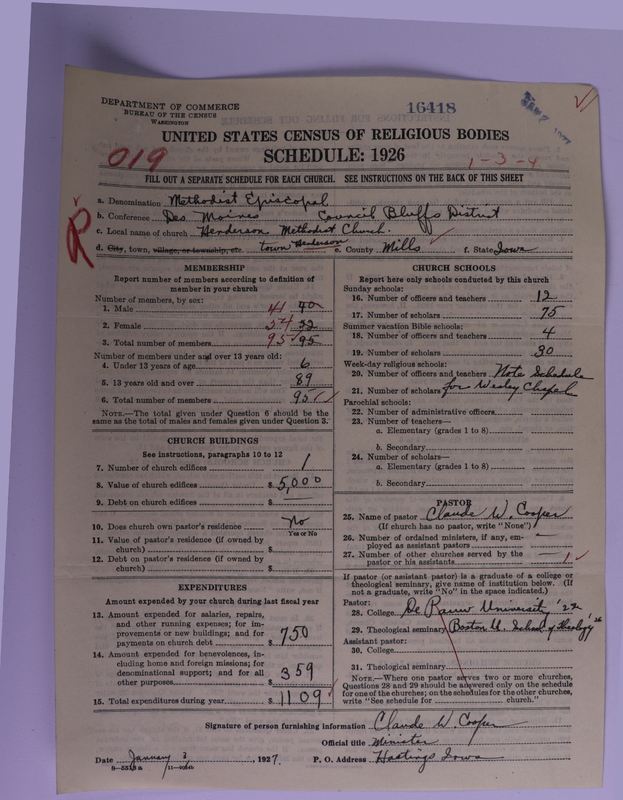 DEPARTMENT OF COMMERCE
BUREAU OF THE CENSUS
WASHINGTON
16418
UNITED STATES CENSUS OF RELIGIOUS BODIES
019
SCHEDULE: 1926
1-3-4
FILL OUT A SEPARATE SCHEDULE FOR EACH CHURCH. SEE INSTRUCTIONS ON THE BACK OF THIS SHEET
R
a. Denomination Methodist Episcopal
b. Conference Des Moines Council Bluffs District
c. Local name of church Henderson Methodist Church.
d. City, town, village, or township, etc. town Henderson e. County Mills f. State Iowa
MEMBERSHIP
Report number of members according to definition of member in your church
Number of members, by sex:
1. Male 41 40
2. Female 54 52
3. Total number of members 95 95
Number of members under and over 13 years old:
4. Under 13 years of age 6
5. 13 years old and over 89
6. Total number of members 95
NOTE.—The total given under Question 6 should be
same as the total of males and females given under Question 3.
CHURCH BUILDINGS
See instructions, paragraphs 10 to 12
7. Number of church edifices 1
8. Value of church edifices $ 5,000
9. Debt on church edifices $ —
10. Does church own pastor's residence No
Yes or No
11. Value of pastor's residence (if owned by
church) $
12. Debt on pastor's residence (if owned by
church) $
EXPENDITURES
Amount expended by your church during last fiscal year
13. Amount expended for salaries, repairs,
and other running expenses; for im-
provements or new buildings; and for
payments on church debt $ 750
14. Amount expended for benevolences, in-
cluding home and foreign missions; for
denominational support; and for all
other purposes $ 359
15. Total expenditures during year $ 1109
CHURCH SCHOOLS
Report here only schools conducted by this church
Sunday schools:
16. Number of officers and teachers 12
17. Number of scholars 75
Summer vacation Bible schools:
18. Number of officers and teachers 4
19. Number of scholars 30
Week-day religious schools:
20. Number of officers and teachers Note Schedule
21. Number of scholars for Wesley Chapel
Parochial schools:
22. Number of administrative officers
23. Number of teachers—
a. Elementary (grades 1 to 8)
b. Secondary
24. Number of scholars—
a. Elementary (grades 1 to 8)
b. Secondary
PASTOR
25. Name of pastor Claude W. Cooper
(If church has no pastor, write "None")
26. Number of ordained ministers, if any, em-
ployed as assistant pastors —
27. Number of other churches served by the
pastor or his assistants 1
If pastor (or assistant pastor) is a graduate of a college or
theological seminary, give name of institution below. (If
not a graduate, write "No" in the space indicated.)
Pastor:
28. College De Pauw University '22
29. Theological seminary Boston U. School of Theology '26
Assistant pastor:
30. College
31. Theological seminary
NOTE.—Where one pastor serves two or more churches,
Questions 28 and 29 should be answered only on the schedule
for one of the churches; on the schedules for the other churches,
write "See schedule for church."
Signature of person furnishing information Claude W. Cooper
Official title Minister
Date January 3, 1927. P. O. Address Hastings Iowa